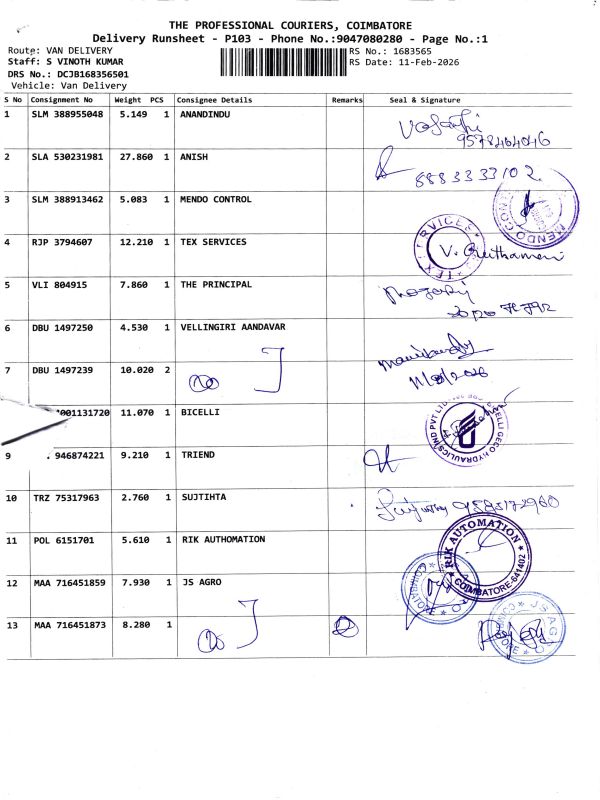 THE PROFESSIONAL COURIERS, COIMBATORE
Delivery Runsheet - P103 - Phone No.:9047080280 - Page No.:1
Route: VAN DELIVERY
RS No.: 1683565
Staff: S VINOTH KUMAR
RS Date: 11-Feb-2026
DRS No.: DCJB168356501
Vehicle: Van Delivery
S No Consignment No Weight PCS Consignee Details Remarks Seal & Signature
1 SLM 388955048 5.149 1 ANANDINDU
9578464046
2 SLA 530231981 27.860 1 ANISH
8883333102
3 SLM 388913462 5.083 1 MENDO CONTROL
MENDO CO
4 RJP 3794607 12.210 1 TEX SERVICES
TEX SERVICES
5 VLI 804915 7.860 1 THE PRINCIPAL
6 DBU 1497250 4.530 1 VELLINGIRI AANDAVAR
7 DBU 1497239 10.020 2
001131720 11.070 1 BICELLI
GECO HYDRAULICS IND PVT LTD
9 946874221 9.210 1 TRIEND
10 TRZ 75317963 2.760 1 SUJTIHTA
11 POL 6151701 5.610 1 RIK AUTHOMATION
RIK AUTOMATION
COIMBATORE-641402
12 MAA 716451859 7.930 1 JS AGRO
13 MAA 716451873 8.280 1
JS AG